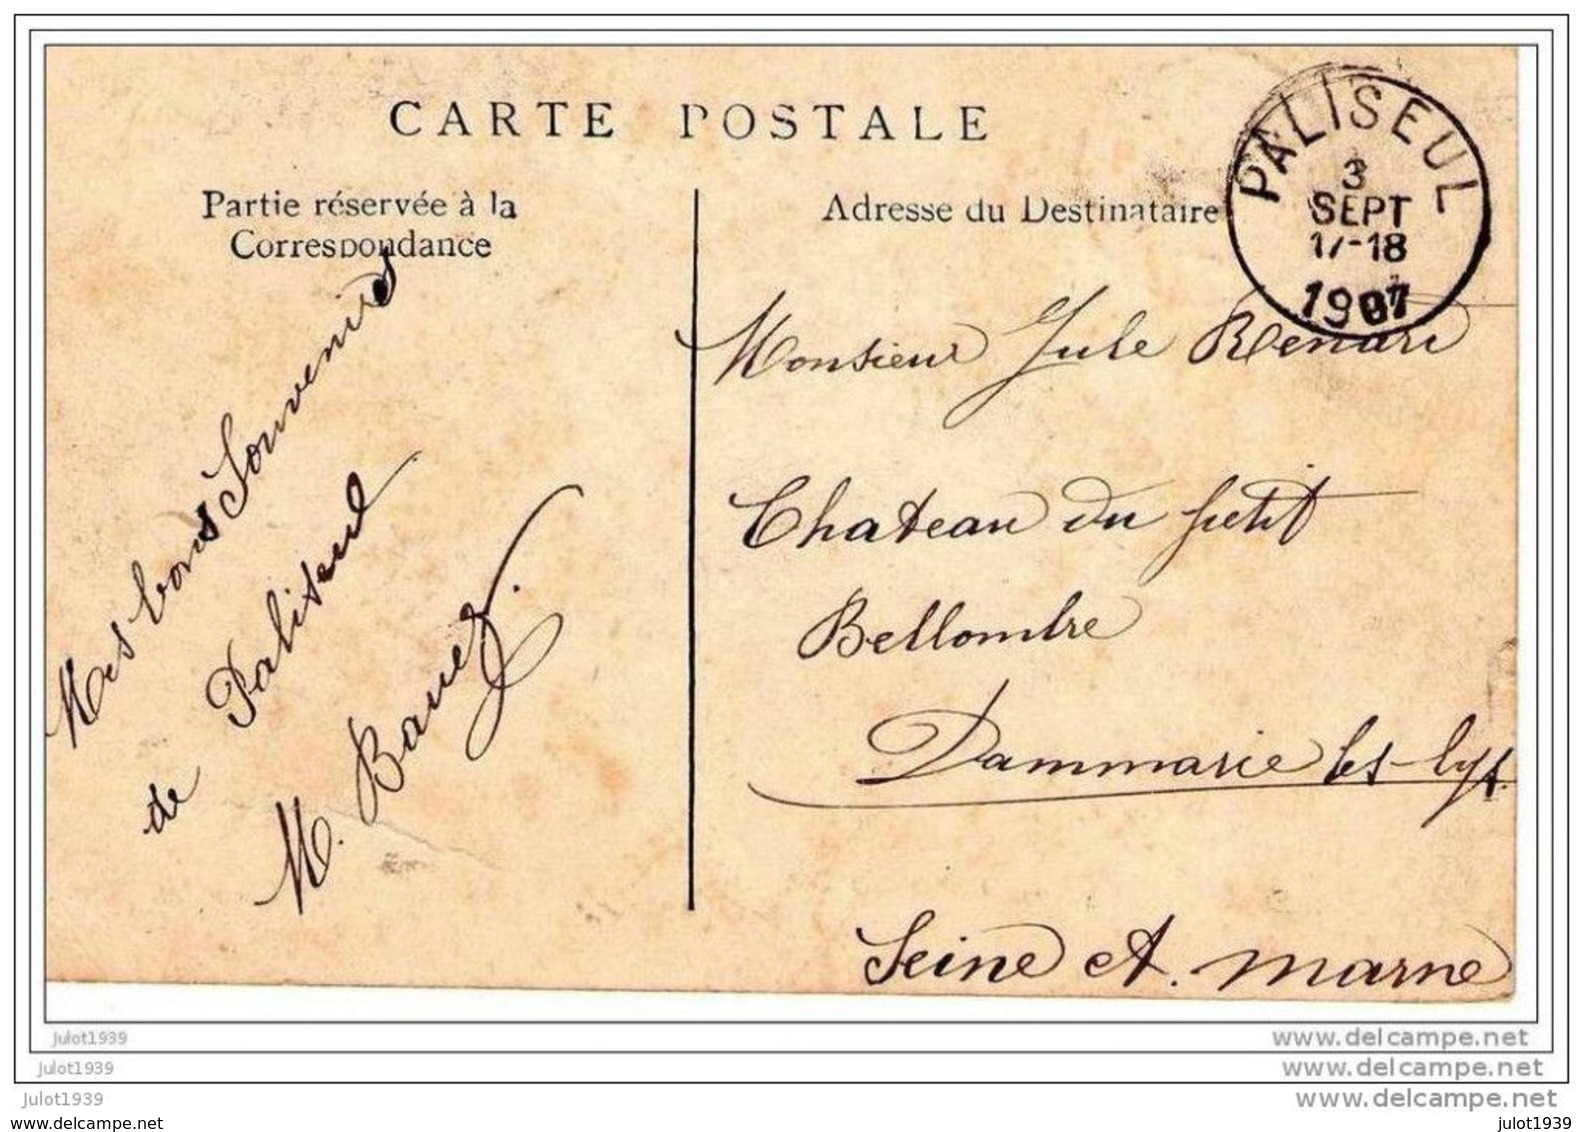 CARTE POSTALE
Partie réservée à la
Correspondance
Adresse du Destinataire
PALISEUL
3
SEPT
17-18
1907
Mes bons Souvenirs
de Paliseul
M. Bauez.
Monsieur Jule Renard
Chateau du petit
Bellombre
Dammarie les-lys.
Seine et. marne
julot1939
www.delcampe.net
julot1939
www.delcampe.net
julot1939
www.delcampe.net
julot1939
julot1939